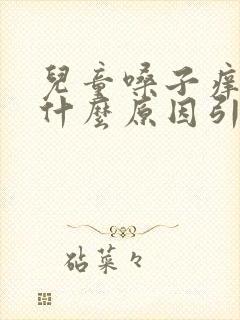 兒童嗓子癢
什麼原因引
砧菜々